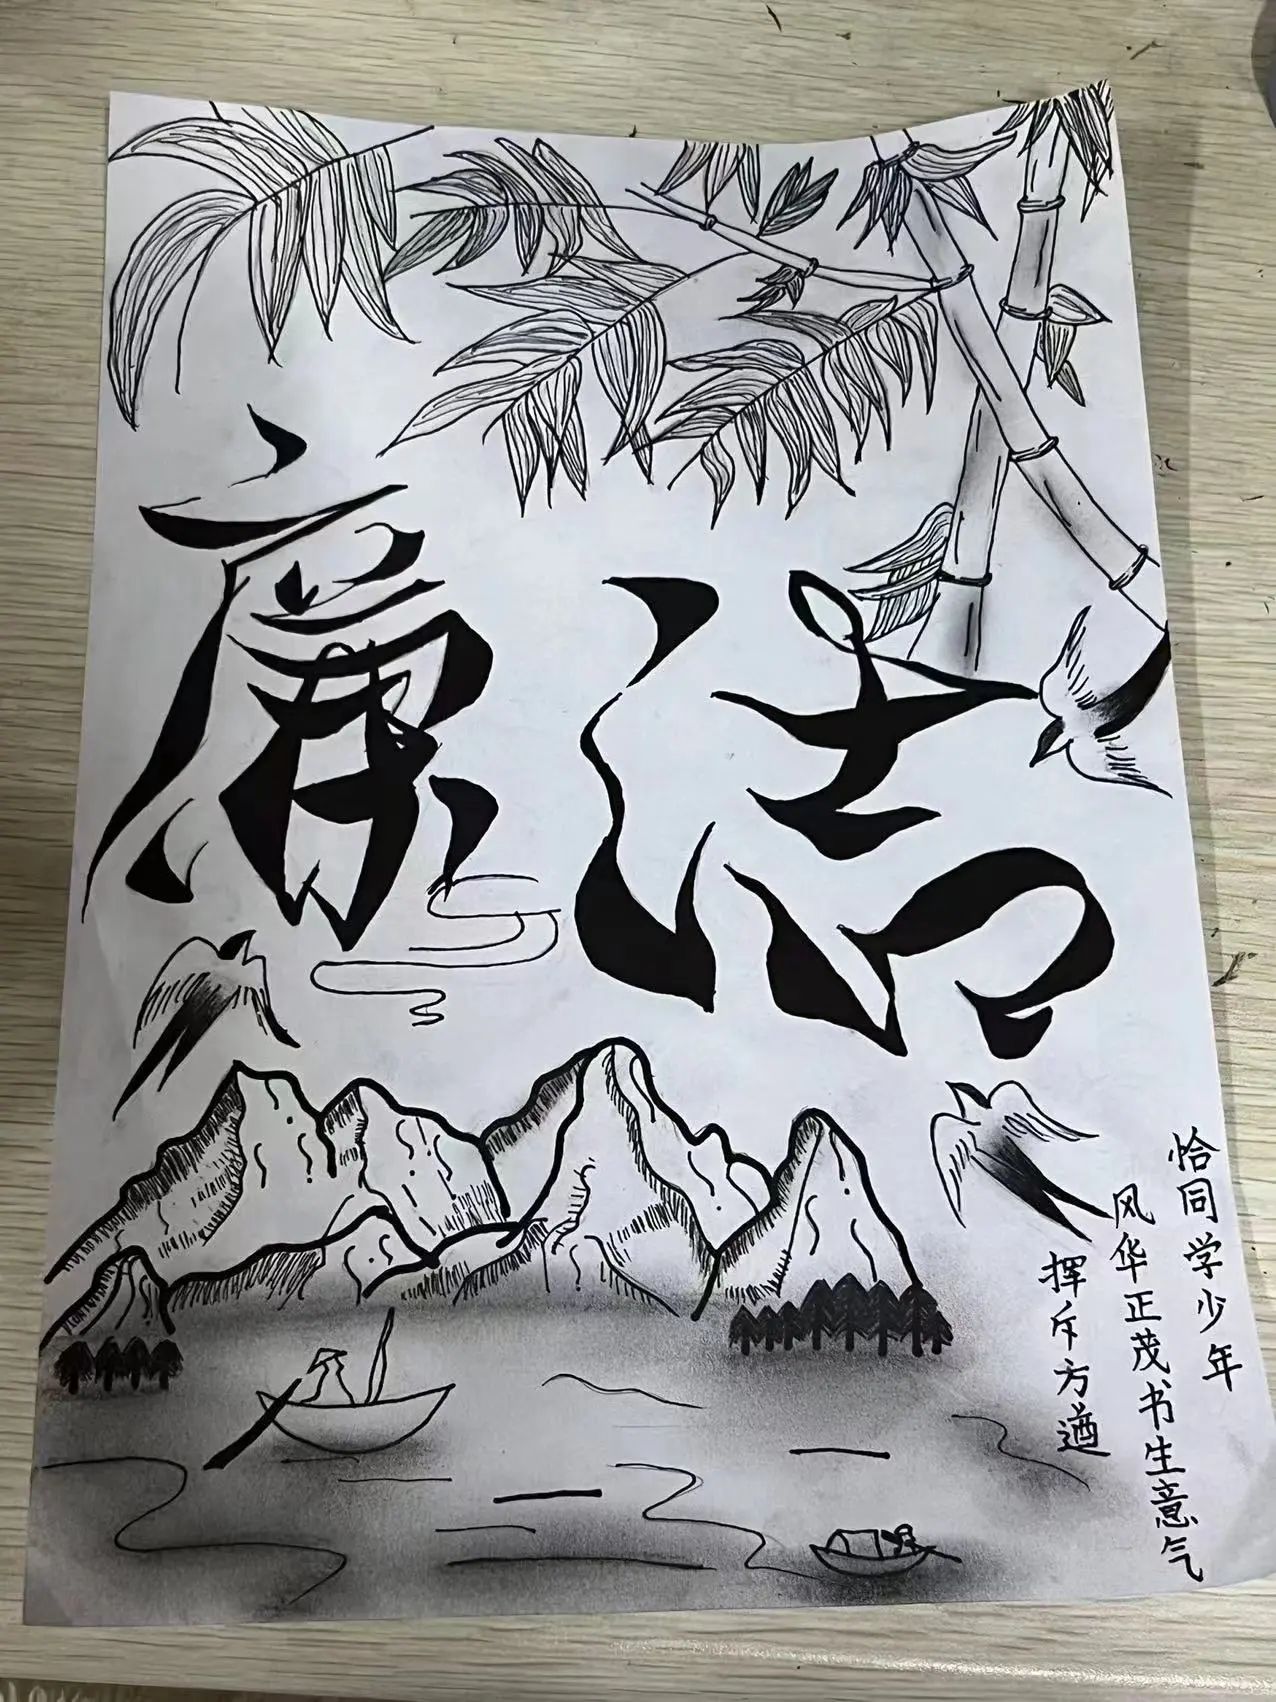 廉洁
恰同学少年
风华正茂书生意气
挥斥方遒